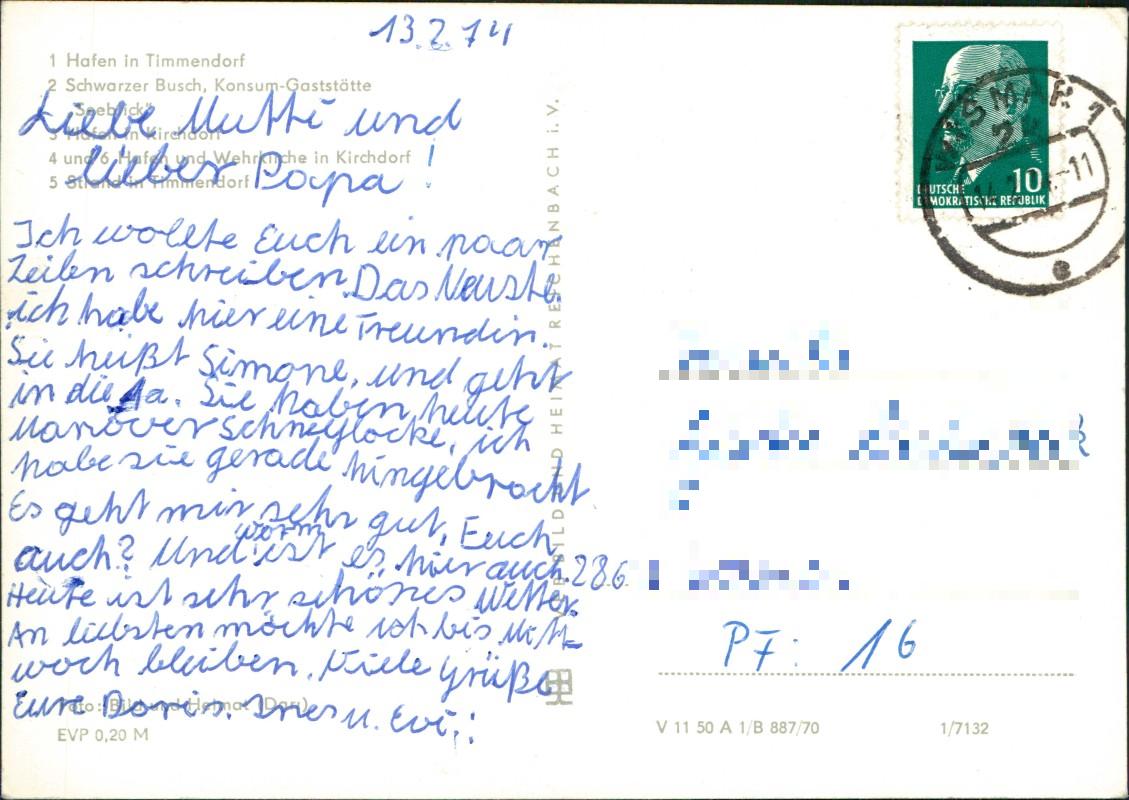 13.2.74
1 Hafen in Timmendorf
2 Schwarzer Busch, Konsum-Gaststätte
„Seeblick“
3 Hafen in Kirchdorf
4 und 6 Hafen und Wehrkirche in Kirchdorf
5 Strand in Timmendorf
Liebe Mutti und
lieber Papa!
Ich wollte Euch ein paar
Zeilen schreiben. Das Neuste
ich habe hier eine Freundin.
Sie heißt Simone, und geht
in die 1a. Sie haben heute
Manöver Schneeflocke, ich
habe sie gerade hingebracht
Es geht mir sehr gut, Euch
auch? Und warm ist es hier auch.
Heute ist sehr schönes Wetter.
An liebsten möchte ich bis Mitt-
woch bleiben. Viele Grüße
Eure Doris. Ines u. Evi!
Foto: Bild und Heimat (Darr)
EVP 0,20 M
BILD UND HEIMAT REICHENBACH i. V.
WISMAR 1
-11
10
DEUTSCHE
DEMOKRATISCHE REPUBLIK
286
PF: 16
V 11 50 A 1/B 887/70
1/7132